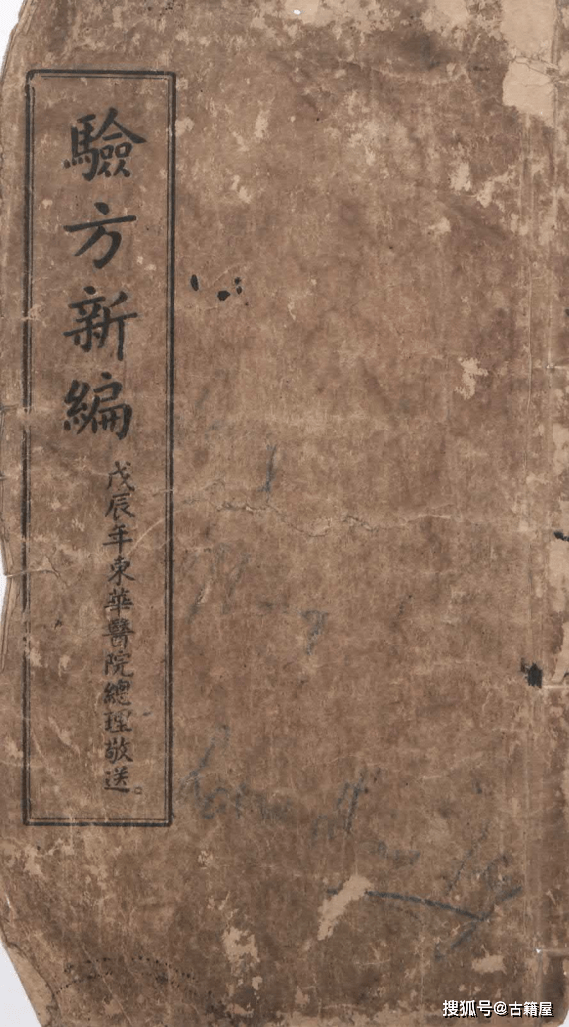 驗方新編
戊辰年東華醫院總理敬送。
搜狐号@古籍屋